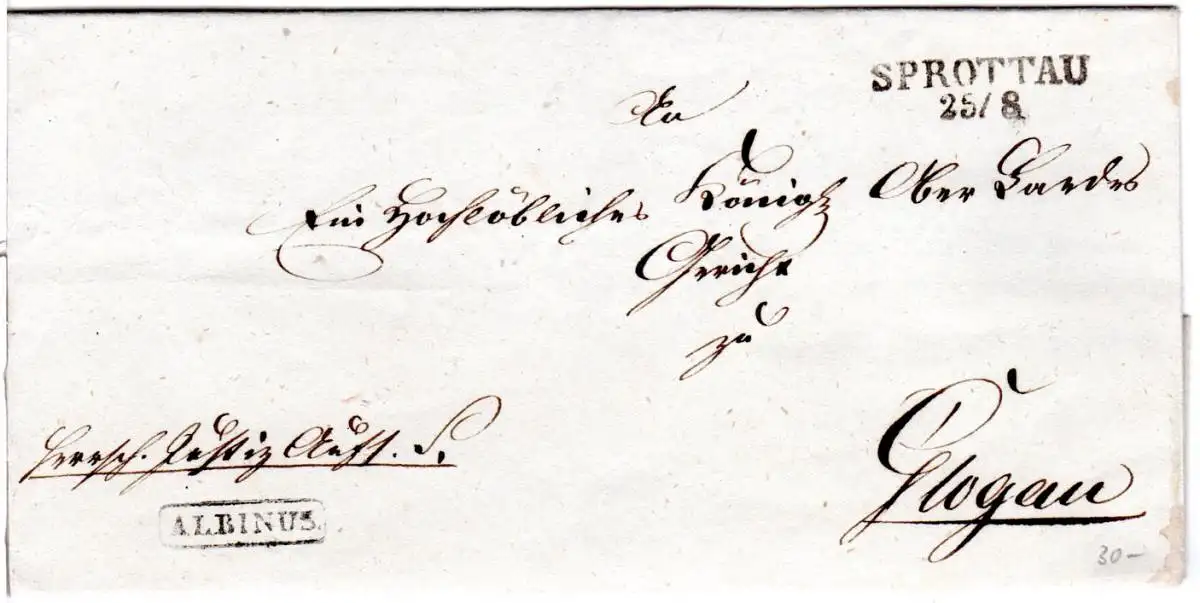 SPROTTAU
25/8
An
Ein Hochlöbliches Königl Ober Landes
Gericht
zu
Glogau
Herrsch. Justiz S.
ALBINUS.
30-